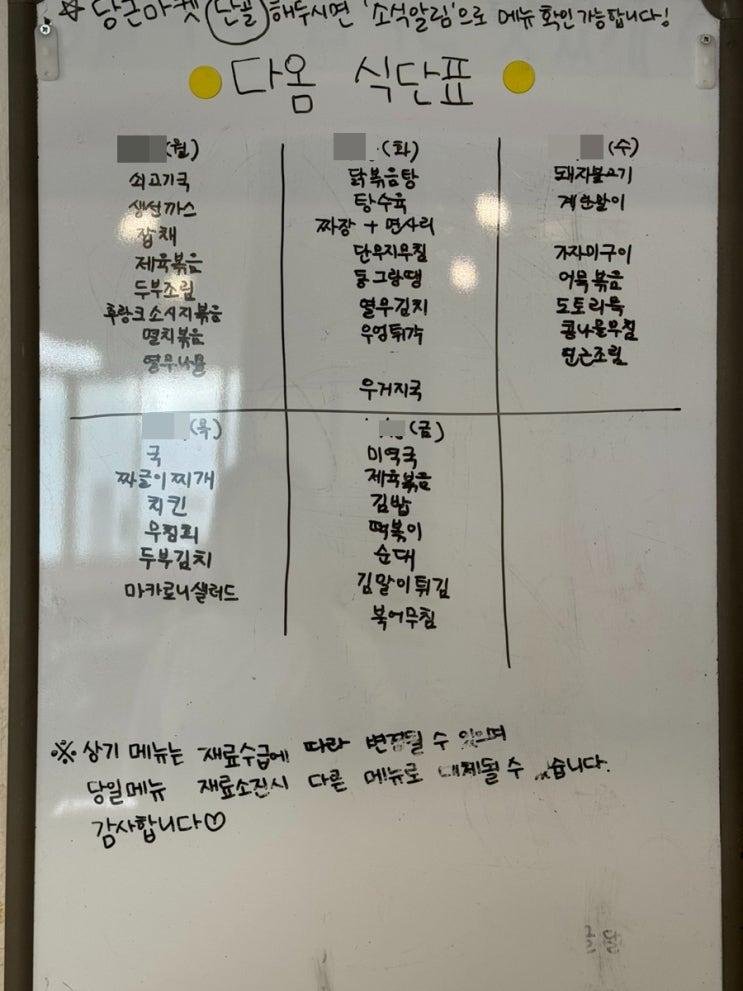 ☆ 당근마켓 단골 해두시면 '소식알림'으로 메뉴 확인 가능합니다!
다옴 식단표
(월)
쇠고기국
생선까스
잡채
제육볶음
두부조림
후랑크소시지볶음
멸치볶음
(화)
닭볶음탕
탕수육
짜장 + 면사리
단무지무침
동그랑땡
열무김치
우엉튀각
우거지국
(수)
돼지불고기
계란말이
가자미구이
어묵볶음
도토리묵
콩나물무침
연근조림
(목)
국
짜글이찌개
치킨
두부김치
마카로니샐러드
(금)
미역국
제육볶음
김밥
떡볶이
순대
김말이튀김
북어무침
※ 상기 메뉴는 재료수급에 따라 변경될 수 있으며
당일메뉴 재료소진시 다른 메뉴로 대체될 수 있습니다.
감사합니다♡